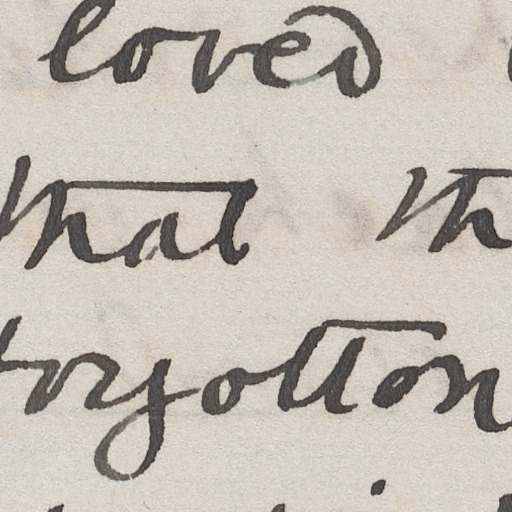 loved
that th
forgotton